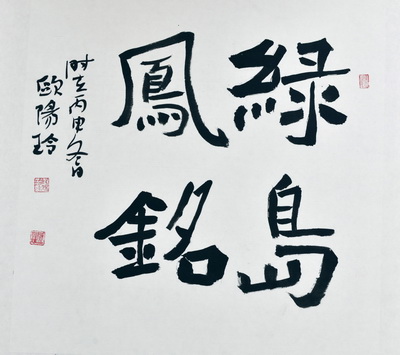 綠島
鳳銘
时在丙申冬日
歐陽玲